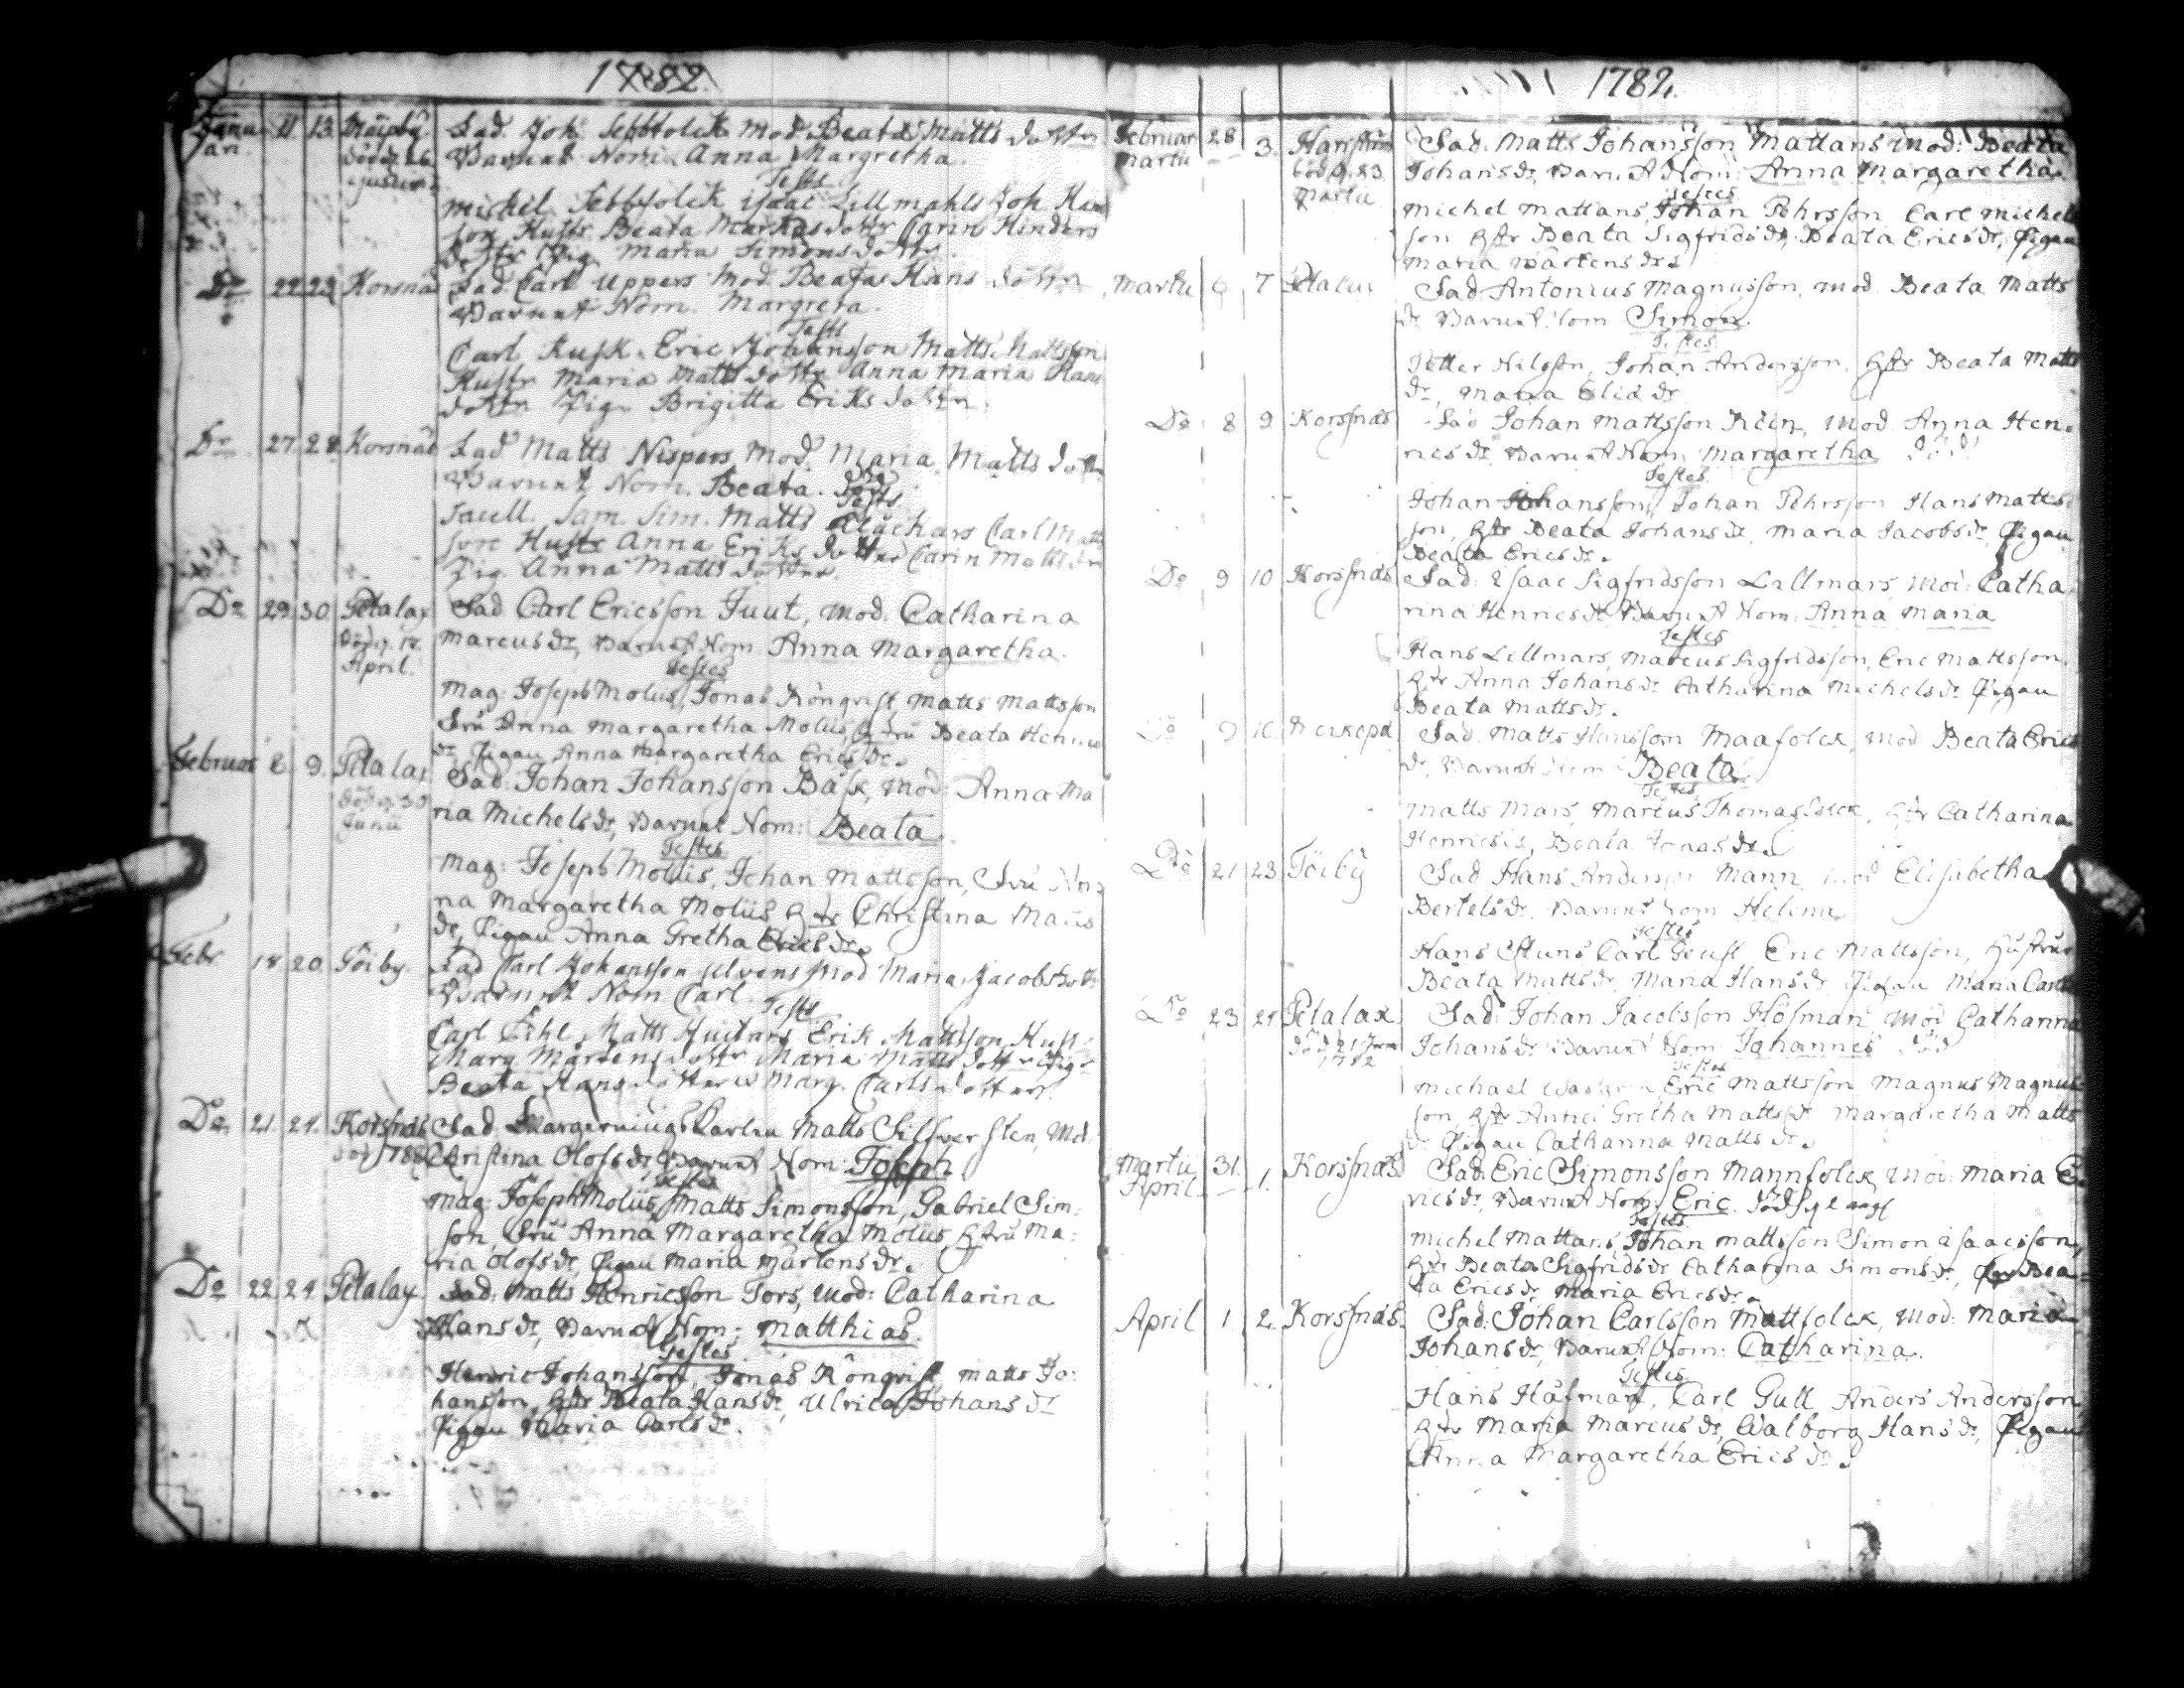 1782.
Janu 11 13 Töiby. Fad. Joh. Sebbfolck Mod Beata Matts dottr
Jan. död d. 26 Barnet Nom. Anna Margretha.
ejusdem Tests
Michel Sebbfolck Isaac Lillmahls Joh
son Hustr Beata Markus dottr Carin Hinders
dottr Pig. Maria Simons dottr.
Do 22 23 Korsnäs Fad Carl Uppers Mod. Beata Hans dottr
Barnet Nom. Margreta.
Tests
Carl Rusk. Eric Johansson Matts Mattsson
Hustr Maria Matts dottr Anna Maria Hans
dottr Pig. Brigitta Eriks dottr.
Do 27 28 Korsnäs Fad Matts Nispers Mod. Maria Matts dottr
Barnet Nom. Beata. död
Tests
Jacell. Sam. Sim. Matts Carl Matts
son Hustr Anna Eriks dotter Carin Matts dr
Pig. Anna Matts dotter.
Do 29 30 Petalax Fad Carl Ericsson Juut, Mod: Catharina
död d. 18 Marcus dr, Barnet Nom: Anna Margaretha.
April. Testes
Mag: Joseph Molius, Jonas Rönqvist Matts Mattsson
Fru Anna Margaretha Molius, Hustru Beata Henrics
dr Pigan Anna Margaretha Erics dr.
Februar 8 9. Petalax Fad: Johan Johansson Bäsk, Mod: Anna Ma
död d. 30 ria Michels dr, Barnet Nom: Beata.
Junii Testes
Mag: Joseph Molius, Johan Mattsson, Fru An
na Margaretha Molius Hustr Christina Matts
dr, Pigan Anna Gretha Erics dr.
Febr 18 20 Töiby. Fad Carl Johansson Ulvens Mod Maria Jacobs dottr
Barnet Nom Carl.
Tests
Carl Matts Erik Mattsson Hustr
Marg Mårtens dottr Maria Matts dottr Pigr
Beata Hans dotter u Marg. Carls dotter.
Do 21 24. Korsnäs Fad Matts Silfversten, Mod.
död 1782 Christina Olofs dr, Barnet Nom: Joseph
Testes
Mag: Joseph Molius, Matts Simonsson, Gabriel Sim:
son Fru Anna Margaretha Molius Hustru Ma:
ria Olofs dr, Pigan Maria Mårtens dr.
Do 22 24 Petalax Fad: Matts Henricsson Tors, Mod: Catharina
Hans dr, Barnet Nom: Matthias.
Testes
Henric Johansson, Jonas Rönqvist, Matts Jo:
hansson, Hustr Beata Hans dr, Ulrica Johans dr
Pigan Maria Carls dr.
1782.
Februar 28 Harström Fad: Matts Johansson Mattans Mod: Beata
Martii 3. död d. 23 Johans dr, Barnet Nom: Anna Margaretha.
Martii Testes
Michel Mattans, Johan Pehrsson Carl Michels
son Hustr Beata Sigfrids dr, Beata Erics dr, Pigan
Maria Mårtens dr.
Martii 6 7 Petalax Fad Antonius Magnusson, Mod Beata Matts
dr Barnet Nom Simon.
Testes
Petter Nilsson, Johan Andersson, Hustr Beata Matts
dr, Maria Elias dr
Do 8 9 Korssnäs Fad Johan Mattsson Rein, Mod Anna Hen
rics dr Barnet Nom: Margaretha död
Testes
Johan Johansson, Johan Pehrsson Hans Matts
son, Hustr Beata Johans dr, Maria Jacobs dr, Pigan
Beata Erics dr.
Do 9 10 Korssnäs Fad: Isaac Sigfridsson Lillmars, Mod: Catha
rina Henrics dr Barnet Nom: Anna Maria
Testes
Hans Lillmars, Marcus Sigfridsson, Eric Mattsson,
Hustr Anna Johans dr Catharina Michels dr Pigan
Beata Matts dr.
Do 9 10 Fad. Matts Hansson Maafolck, Mod Beata Erics
dr, Barnet Nom: Beata.
Testes
Matts Mars, Marcus Thomasfolck, Hustr Catharina
Henrics dr, Beata Jonas dr.
Do 21 23 Töiby Fad Hans Andersson Mann, Mod Elisabetha
Bertels dr, Barnet Nom Helena
Testes
Hans Stuns Carl Geust, Eric Mattsson, Hustru
Beata Matts dr, Maria Hans dr Pigan Maria Carls
Do 23 24 Petalax Fad: Johan Jacobsson Höfman, Mod Catharina
1782 Johans dr Barnet Nom: Johannes död
Testes
Michael Eric Mattsson Magnus Magnus
son, Hustr Anna Gretha Matts dr Margaretha Matts
dr Pigan Catharina Matts dr.
Martii 31. Korsnäs Fad: Eric Simonsson Mannfolck, Mod: Maria E
April 1. rics dr, Barnet Nom: Eric.
Testes
Michel Mattans, Johan Mattsson Simon Isaacsson,
Hustr Beata Sigfrids dr Catharina Simons dr, Bea
ta Erics dr, Maria Erics dr.
April 1. 2. Korsnäs. Fad: Johan Carlsson Mattfolck, Mod: Maria
Johans dr, Barnet Nom: Catharina.
Testes
Hans Håfman, Carl Gull Anders Andersson,
Hustr Maria Marcus dr, Walborg Hans dr, Pigan
Anna Margaretha Erics dr.